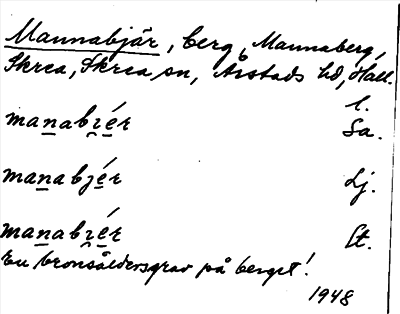 Mannabjär, berg, Mannaberg,
Skrea, Skrea sn, Årstads hd, Hall.
l.
manabɪ̯ér Sa.
manabjér Lj.
manabɪ̯ér St.
En bronsåldersgrav på berget!
1948